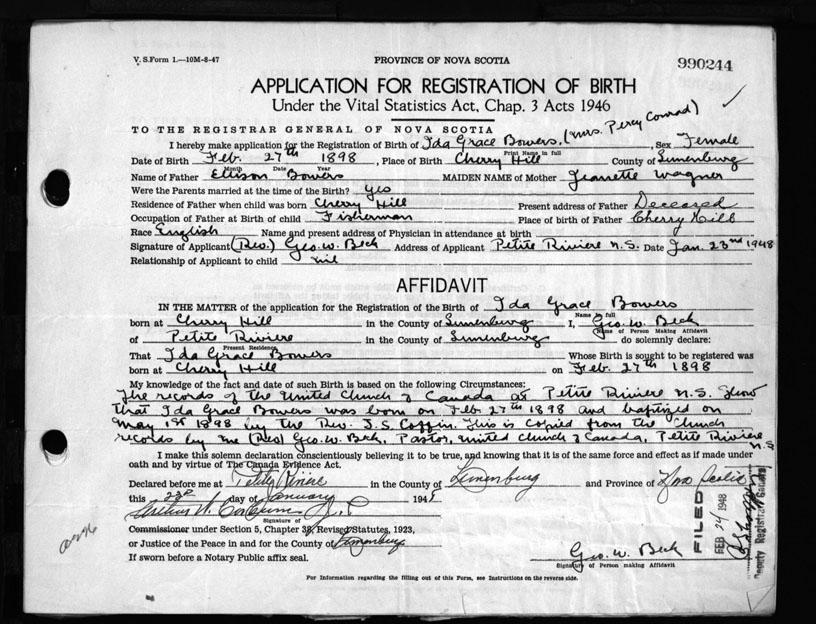 V. S. Form 1.—10M-8-47
PROVINCE OF NOVA SCOTIA
990244
APPLICATION FOR REGISTRATION OF BIRTH
Under the Vital Statistics Act, Chap. 3 Acts 1946
TO THE REGISTRAR GENERAL OF NOVA SCOTIA
I hereby make application for the Registration of Birth of Ida Grace Bowers. (Mrs. Percy Conrad) Sex Female
Print Name in full
Date of Birth Feb. 27th 1898, Place of Birth Cherry Hill County of Lunenburg
Month Date Year
Name of Father Ellison Bowers MAIDEN NAME of Mother Jeanette Wagner
Were the Parents married at the time of the Birth? yes
Residence of Father when child was born Cherry Hill Present address of Father Deceased
Occupation of Father at Birth of child Fisherman Place of birth of Father Cherry Hill
Race English Name and present address of Physician in attendance at birth
Signature of Applicant (Rev.) Geo. W. Beck Address of Applicant Petite Riviere N.S. Date Jan. 23rd 1948
Relationship of Applicant to child nil
AFFIDAVIT
IN THE MATTER of the application for the Registration of the Birth of Ida Grace Bowers
Name in full
born at Cherry Hill in the County of Lunenburg I, Geo. W. Beck
Name of Person Making Affidavit
of Petite Riviere in the County of Lunenburg do solemnly declare:
Present Residence
That Ida Grace Bowers Whose Birth is sought to be registered was
born at Cherry Hill on Feb. 27th 1898
My knowledge of the fact and date of such Birth is based on the following Circumstances:
The records of the United Church of Canada at Petite Riviere N.S. show
that Ida Grace Bowers was born on Feb. 27th 1898 and baptized on
May 1st 1898 by the Rev. J. S. Coffin. This is copied from the Church
records by me (Rev) Geo. W. Beck, Pastor, United Church of Canada, Petite Riviere
N.S
I make this solemn declaration conscientiously believing it to be true, and knowing that it is of the same force and effect as if made under
oath and by virtue of The Canada Evidence Act.
Declared before me at Petite Riviere in the County of Lunenburg and Province of Nova Scotia
this 23rd day of January 1948
Arthur W. J.P.
Signature of
Commissioner under Section 5, Chapter 38, Revised Statutes, 1923,
or Justice of the Peace in and for the County of Lunenburg
If sworn before a Notary Public affix seal.
Geo. W. Beck
Signature of Person making Affidavit
FILED
FEB 24 1948
Deputy Registrar General
For Information regarding the filling out of this Form, see Instructions on the reverse side.